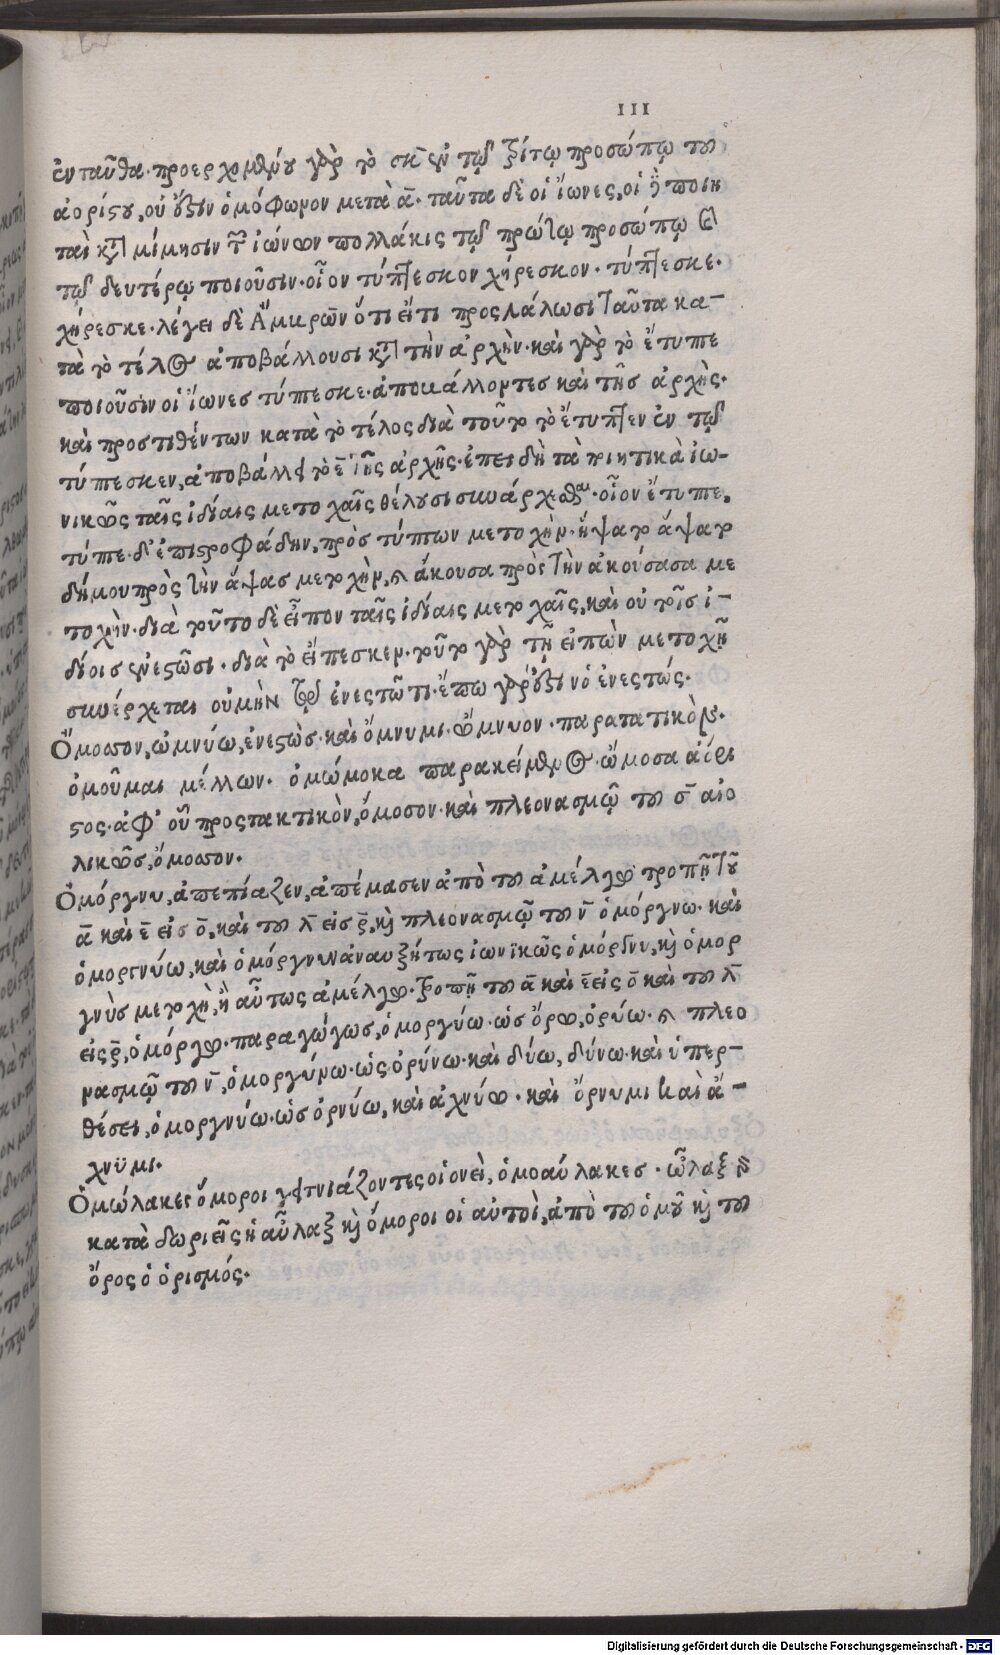 111
ἐνταῦθα· προερχομένου γὰρ τὸ σκ̄ ἐν τῷ τρίτῳ προσώπῳ τοῦ
ἀορίστου, οὐ ἔστιν ὁμόφωνον μετὰ ᾱ· ταῦτα δὲ οἱ ἴωνες, οἱ ποιη
ταὶ κατὰ μίμησιν τῶν ἰώνων πολλάκις τῷ πρώτῳ προσώπῳ καὶ
τῷ δευτέρῳ ποιοῦσιν· οἷον τύπτεσκον χήρεσκον· τύπτεσκε·
χήρεσκε· λέγει δὲ Ἄμκρων ὅτι εἴτι προσλάλωσι ταῦτα κα-
τὰ τὸ τέλος ἀποβάλλουσι κατὰ τὴν ἀρχὴν· καὶ γὰρ τὸ ἔτυπε
ποιοῦσιν οἱ ἴωνες τύπεσκε· ἀποβάλλοντες καὶ τῆς ἀρχῆς·
καὶ προστιθέντων κατὰ τὸ τέλος διὰ τοῦτο τὸ ἔτυπτεν ἐν τῷ
τύπεσκεν, ἀποβάλλει τὸ ε̄ τῆς ἀρχῆς· ἐπειδὴ τὰ κινητικὰ ἰω-
νικῶς ταῖς ἰδίαις μετοχαῖς θέλουσι συνάρχεσθαι· οἷον ἔτυπε,
τύπε· δ' ἐπιστροφάδην, πρὸς τύπτων μετοχὴν· ἥψατο ἅψατο
δήμου πρὸς τὴν ἅψας μετοχὴν, καὶ ἄκουσα πρὸς τὴν ἀκούσασα με
τοχὴν· διὰ τοῦτο δὲ εἶπον ταῖς ἰδίαις μετοχαῖς, καὶ οὐ τοῖς ἰ-
δίοις ἐνεστῶσι· διὰ τὸ εἴπεσκεν· τοῦτο γὰρ τῇ εἰπὼν μετοχῇ
συνέρχεται οὐ μὴν τῷ ἐνεστῶτι· ἔπω γάρ ἐστιν ὁ ἐνεστώς.
Ὄμοσον, ὠμνύω, ἐνεστὼς· καὶ ὄμνυμι· ὤμνυον· παρατατικὸς.
ὀμοῦμαι μέλλων· ὀμώμοκα παρακείμενος· ὤμοσα ἀόρι
στος· ἀφ' οὗ προστακτικὸν, ὄμοσον· καὶ πλεονασμῷ τοῦ σ̄ αἰο
λικῶς, ὄμοσσον.
Ὀμόργνυ, ἀπεπίαζεν, ἀπέμασεν ἀπὸ τοῦ ἀμέλγω τροπῇ τοῦ
ᾱ καὶ ε̄ εἰς ο̄, καὶ τοῦ λ̄ εἰς ρ̄, καὶ πλεονασμῷ τοῦ ν̄ ὁμόργνω· καὶ
ὁμοργνύω, καὶ ὁμόργνυν ἀναυξήτως ἰωνικῶς ὁμόργνυ, καὶ ὁμορ
γνὺς μετοχὴ, ἢ αὕτως ἀμέλγω· τροπῇ τοῦ ᾱ καὶ ε̄ εἰς ο̄ καὶ τοῦ λ̄
εἰς ρ̄, ὁμόργω· παραγώγως, ὁμοργύω· ὡς ὄρω, ὀρύω· καὶ πλεο
νασμῷ τοῦ ν̄, ὁμοργύνω· ὡς ὀρύνω· καὶ δύω, δύνω· καὶ ὑπερ-
θέσει, ὁμοργνύω· ὡς ὀρνύω, καὶ ἀχνύω· καὶ ὄρνυμι καὶ ἄ-
χνϋμι.
Ὁμώλακες ὅμοροι γειτνιάζοντες οἱονεὶ, ὁμοαύλακες· ὦλαξ δὲ
κατὰ δωριεῖς ἡ αὖλαξ καὶ ὅμοροι οἱ αὐτοὶ, ἀπὸ τοῦ ὁμοῦ καὶ τοῦ
ὅρος ὁ ὁρισμός.
Digitalisierung gefördert durch die Deutsche Forschungsgemeinschaft - DFG